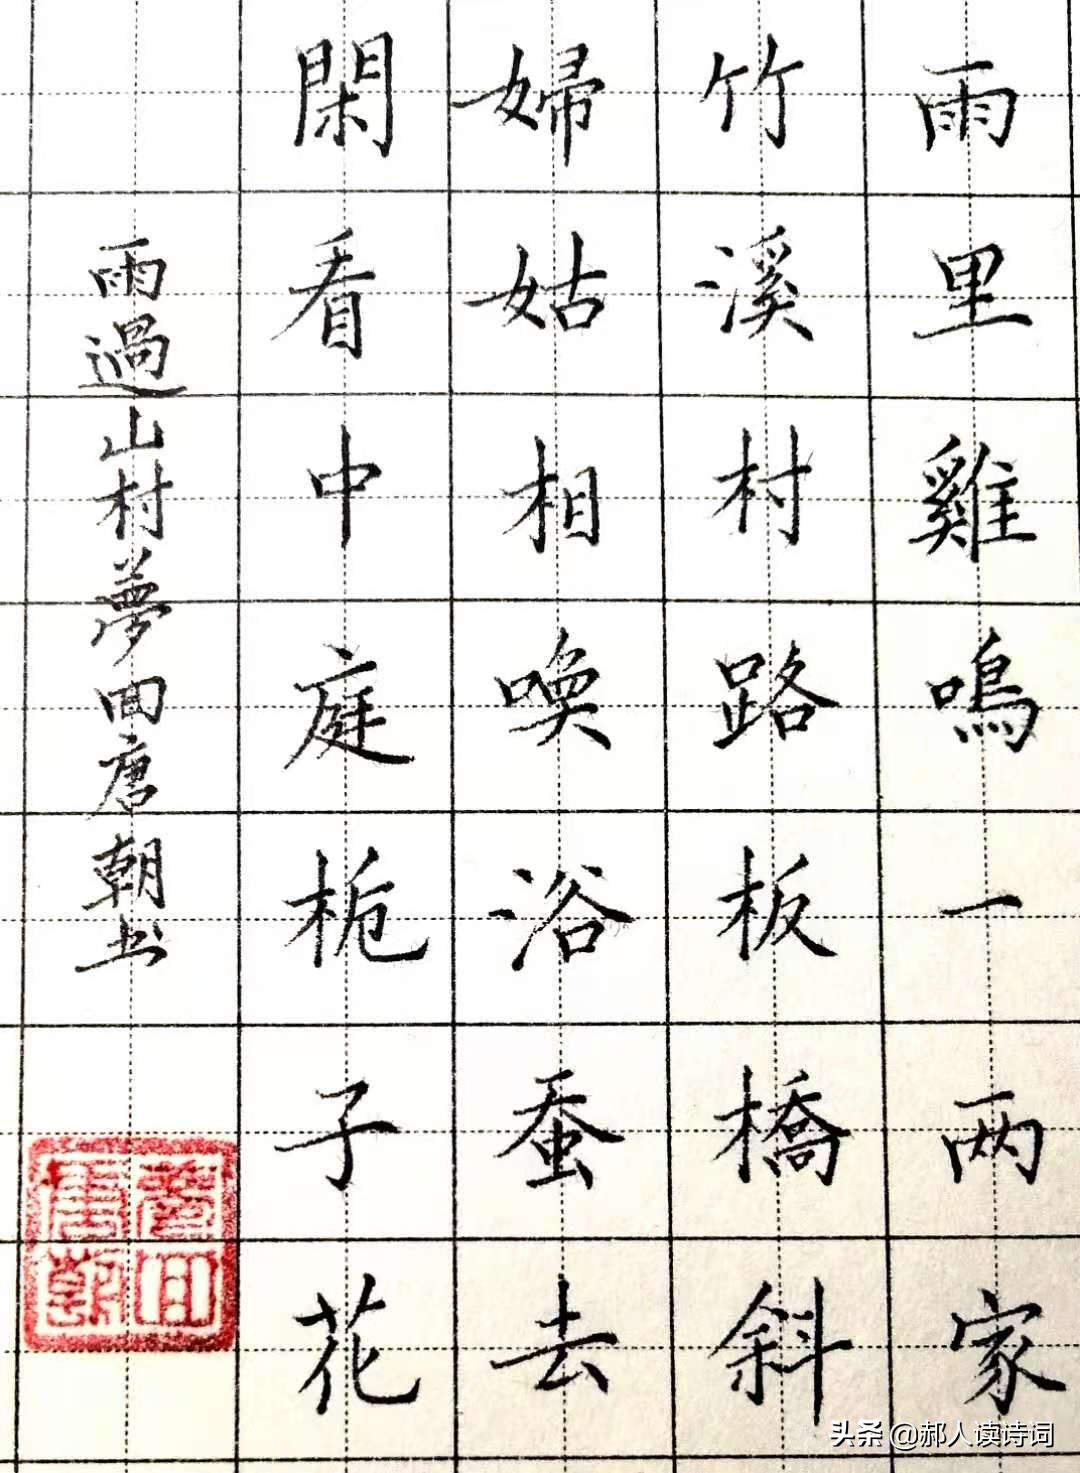 雨里雞鳴一両家
竹溪村路板橋斜
婦姑相喚浴蚕去
閑看中庭栀子花
雨過山村夢回唐朝书
夢回唐朝
头条 @郝人读诗词